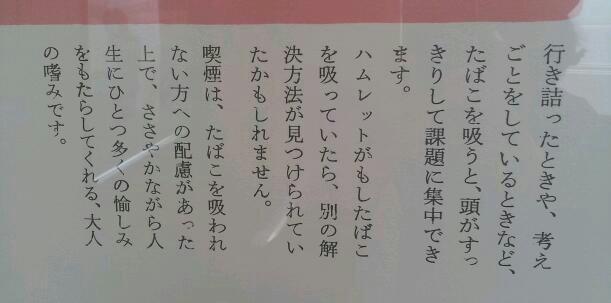 行き詰ったときや、考え
ごとをしているときなど、
たばこを吸うと、頭がすっ
きりして課題に集中でき
ます。
ハムレットがもしたばこ
を吸っていたら、別の解
決方法が見つけられてい
たかもしれません。
喫煙は、たばこを吸われ
ない方への配慮があった
上で、ささやかながら人
生にひとつ多くの愉しみ
をもたらしてくれる、大人
の嗜みです。